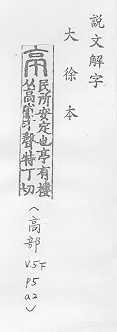 說文解字
大徐本
亭
民所安定也亭有樓
从高省丁聲特丁切
(高部
V.5下
P5
a2)